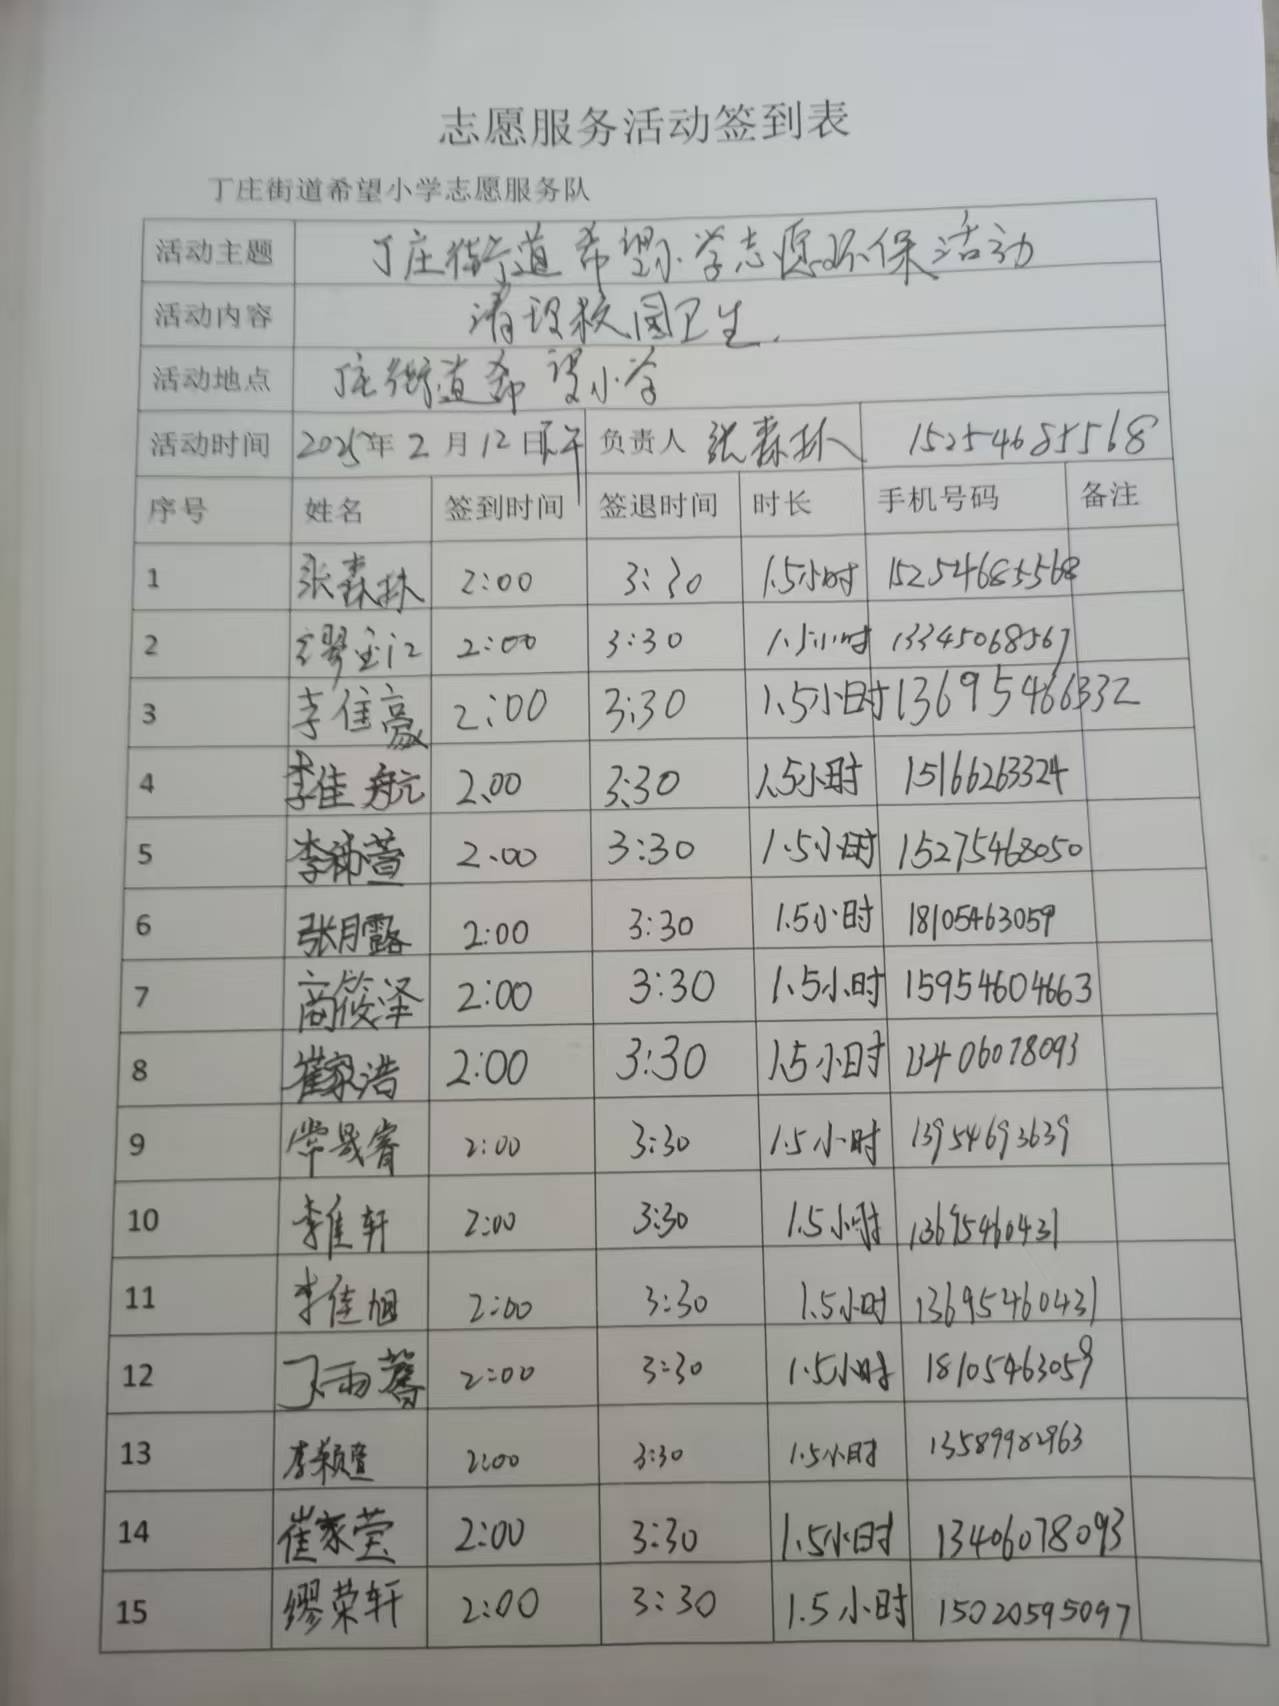 志愿服务活动签到表
丁庄街道希望小学志愿服务队
活动主题 丁庄街道希望小学志愿环保活动
活动内容 清理校园卫生.
活动地点 丁庄街道希望小学
活动时间 2025年2月12日下午 负责人 张森林 15254685568
序号 姓名 签到时间 签退时间 时长 手机号码 备注
1 张森林 2:00 3:30 1.5小时 15254685568
2 缪 2:00 3:30 1.5小时 13345068567
3 李佳豪 2:00 3:30 1.5小时 13695466332
4 李佳航 2:00 3:30 1.5小时 15166263324
5 李沛萱 2:00 3:30 1.5小时 15275468050
6 张月露 2:00 3:30 1.5小时 18105463059
7 商筱泽 2:00 3:30 1.5小时 15954604663
8 崔家浩 2:00 3:30 1.5小时 13406078093
9 常晟睿 2:00 3:30 1.5小时 13954693639
10 李佳轩 2:00 3:30 1.5小时 13695460431
11 李佳旭 2:00 3:30 1.5小时 13695460431
12 丁雨馨 2:00 3:30 1.5小时 18105463059
13 李颖萱 2:00 3:30 1.5小时 13589982963
14 崔家莹 2:00 3:30 1.5小时 13406078093
15 缪荣轩 2:00 3:30 1.5小时 15020595097